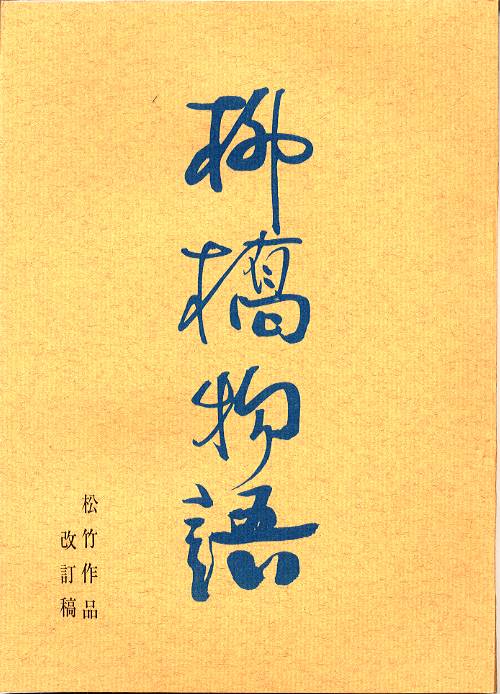 柳橋物語
松竹作品
改訂稿